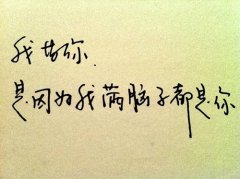 我 你,
是因为我满脑子都是你